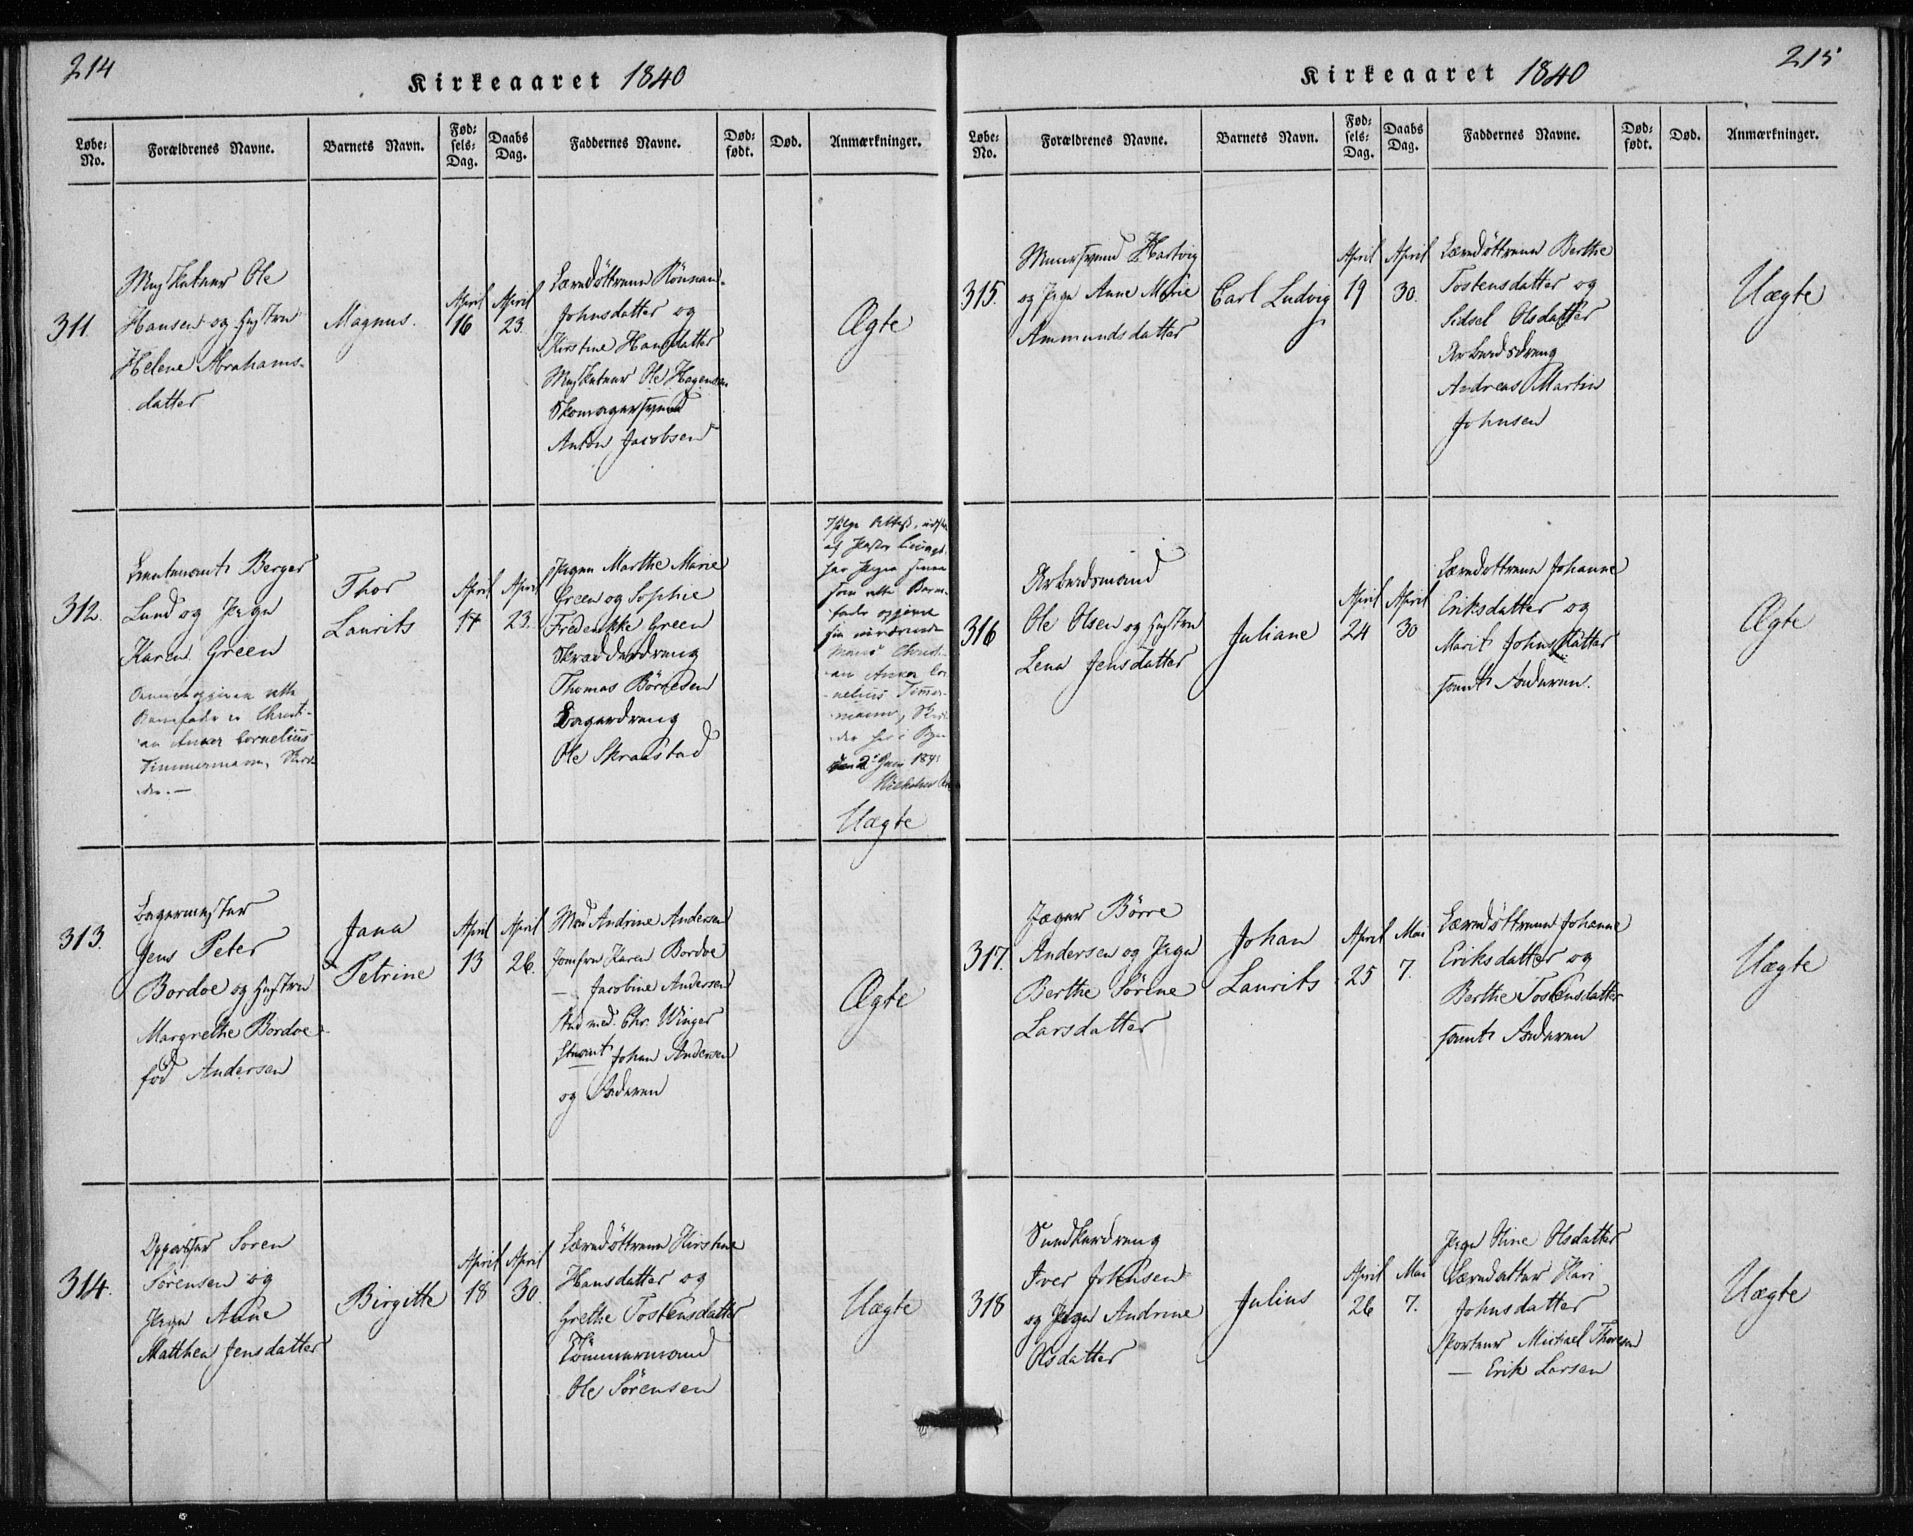 214
Kirkeaaret 1840
Løbe-
No.
Forældrenes Navne.
Barnets Navn.
Fød-
sels-
Dag.
Daabs
Dag.
Faddernes Navne.
Død-
født.
Død.
Anmærkninger.
311.
Musketeer Ole
Hansen og Hustru
Helene Abrahams-
datter
Magnus.
April
16
April
23.
Tjenestpigerne
Johnsdatter og
Kirstine Hansdatter
Musketeer Ole Hagensen
Skomagersvend
Anton Jacobsen
Ægte
312.
Lieutenant Berger
Lund og Pige
Karen Green
Barnefader er Christi-
an Anker Cornelius
Timmermann,
Thor
Laurits
April
17
April
23.
Pigen Marthe Marie
Green og Sophie
Frederikke Green
Skrædderdreng
Thomas Börresen
Bagerdreng
Ole Skraastad
af Pastor
har Pigen
som
fader opgivet
sin nærværende
Mand Christi-
an Anker Cor-
nelius Timmer-
mann,
Uægte
313.
Bagermester
Jens Peter
Bordoe og Hustru
Margrethe Bordoe
fød Andersen
Jana
Petrine
April
13
April
26.
Mad Andrine Andersen
Jomfru Karen Bordoe
— Jacobine Andersen
Stud med. Chr. Winger
Johan Andersen
og Faderen
Ægte
314.
Oppasser Sören
Sörensen og
Pige Anne
Matthea Jensdatter
Birgitte
April
18
April
30.
Kirstine
Hansdatter og
Grethe Tostensdatter
Tömmermand
Ole Sörensen
Uægte
215
Kirkeaaret 1840
Løbe-
No.
Forældrenes Navne.
Barnets Navn.
Fød-
sels-
Dag.
Daabs
Dag.
Faddernes Navne.
Død-
født.
Død.
Anmærkninger.
315.
Muursvend Hartvig
og Pige Anne Marie
Ammundsdatter
Carl Ludvig
April
19
April
30.
Berthe
Tostensdatter og
Sidsel Olsdatter
Arbeidsdreng
Andreas Martin
Johnsen
Uægte
316
Arbeidsmand
Ole Olsen og Hustru
Lena Jensdatter
Juliane
April
24
April
30
Johanne
Eriksdatter og
Marit Johnsdatter
samt Faderen.
Ægte
317.
Jæger Börre
Andersen og Pige
Berthe Sörine
Larsdatter
Johan
Laurits
April
25
Mai
7.
Johanne
Eriksdatter og
Berthe Tostensdatter
samt Faderen
Uægte
318
Snedkerdreng
Iver Johnsen
og Pige Andrine
Olsdatter
Julius
April
26
Mai
7.
Pige Stine Olsdatter
Kari
Johnsdatter
Sporteur Michael Thoresen
— Erik Larsen
Uægte